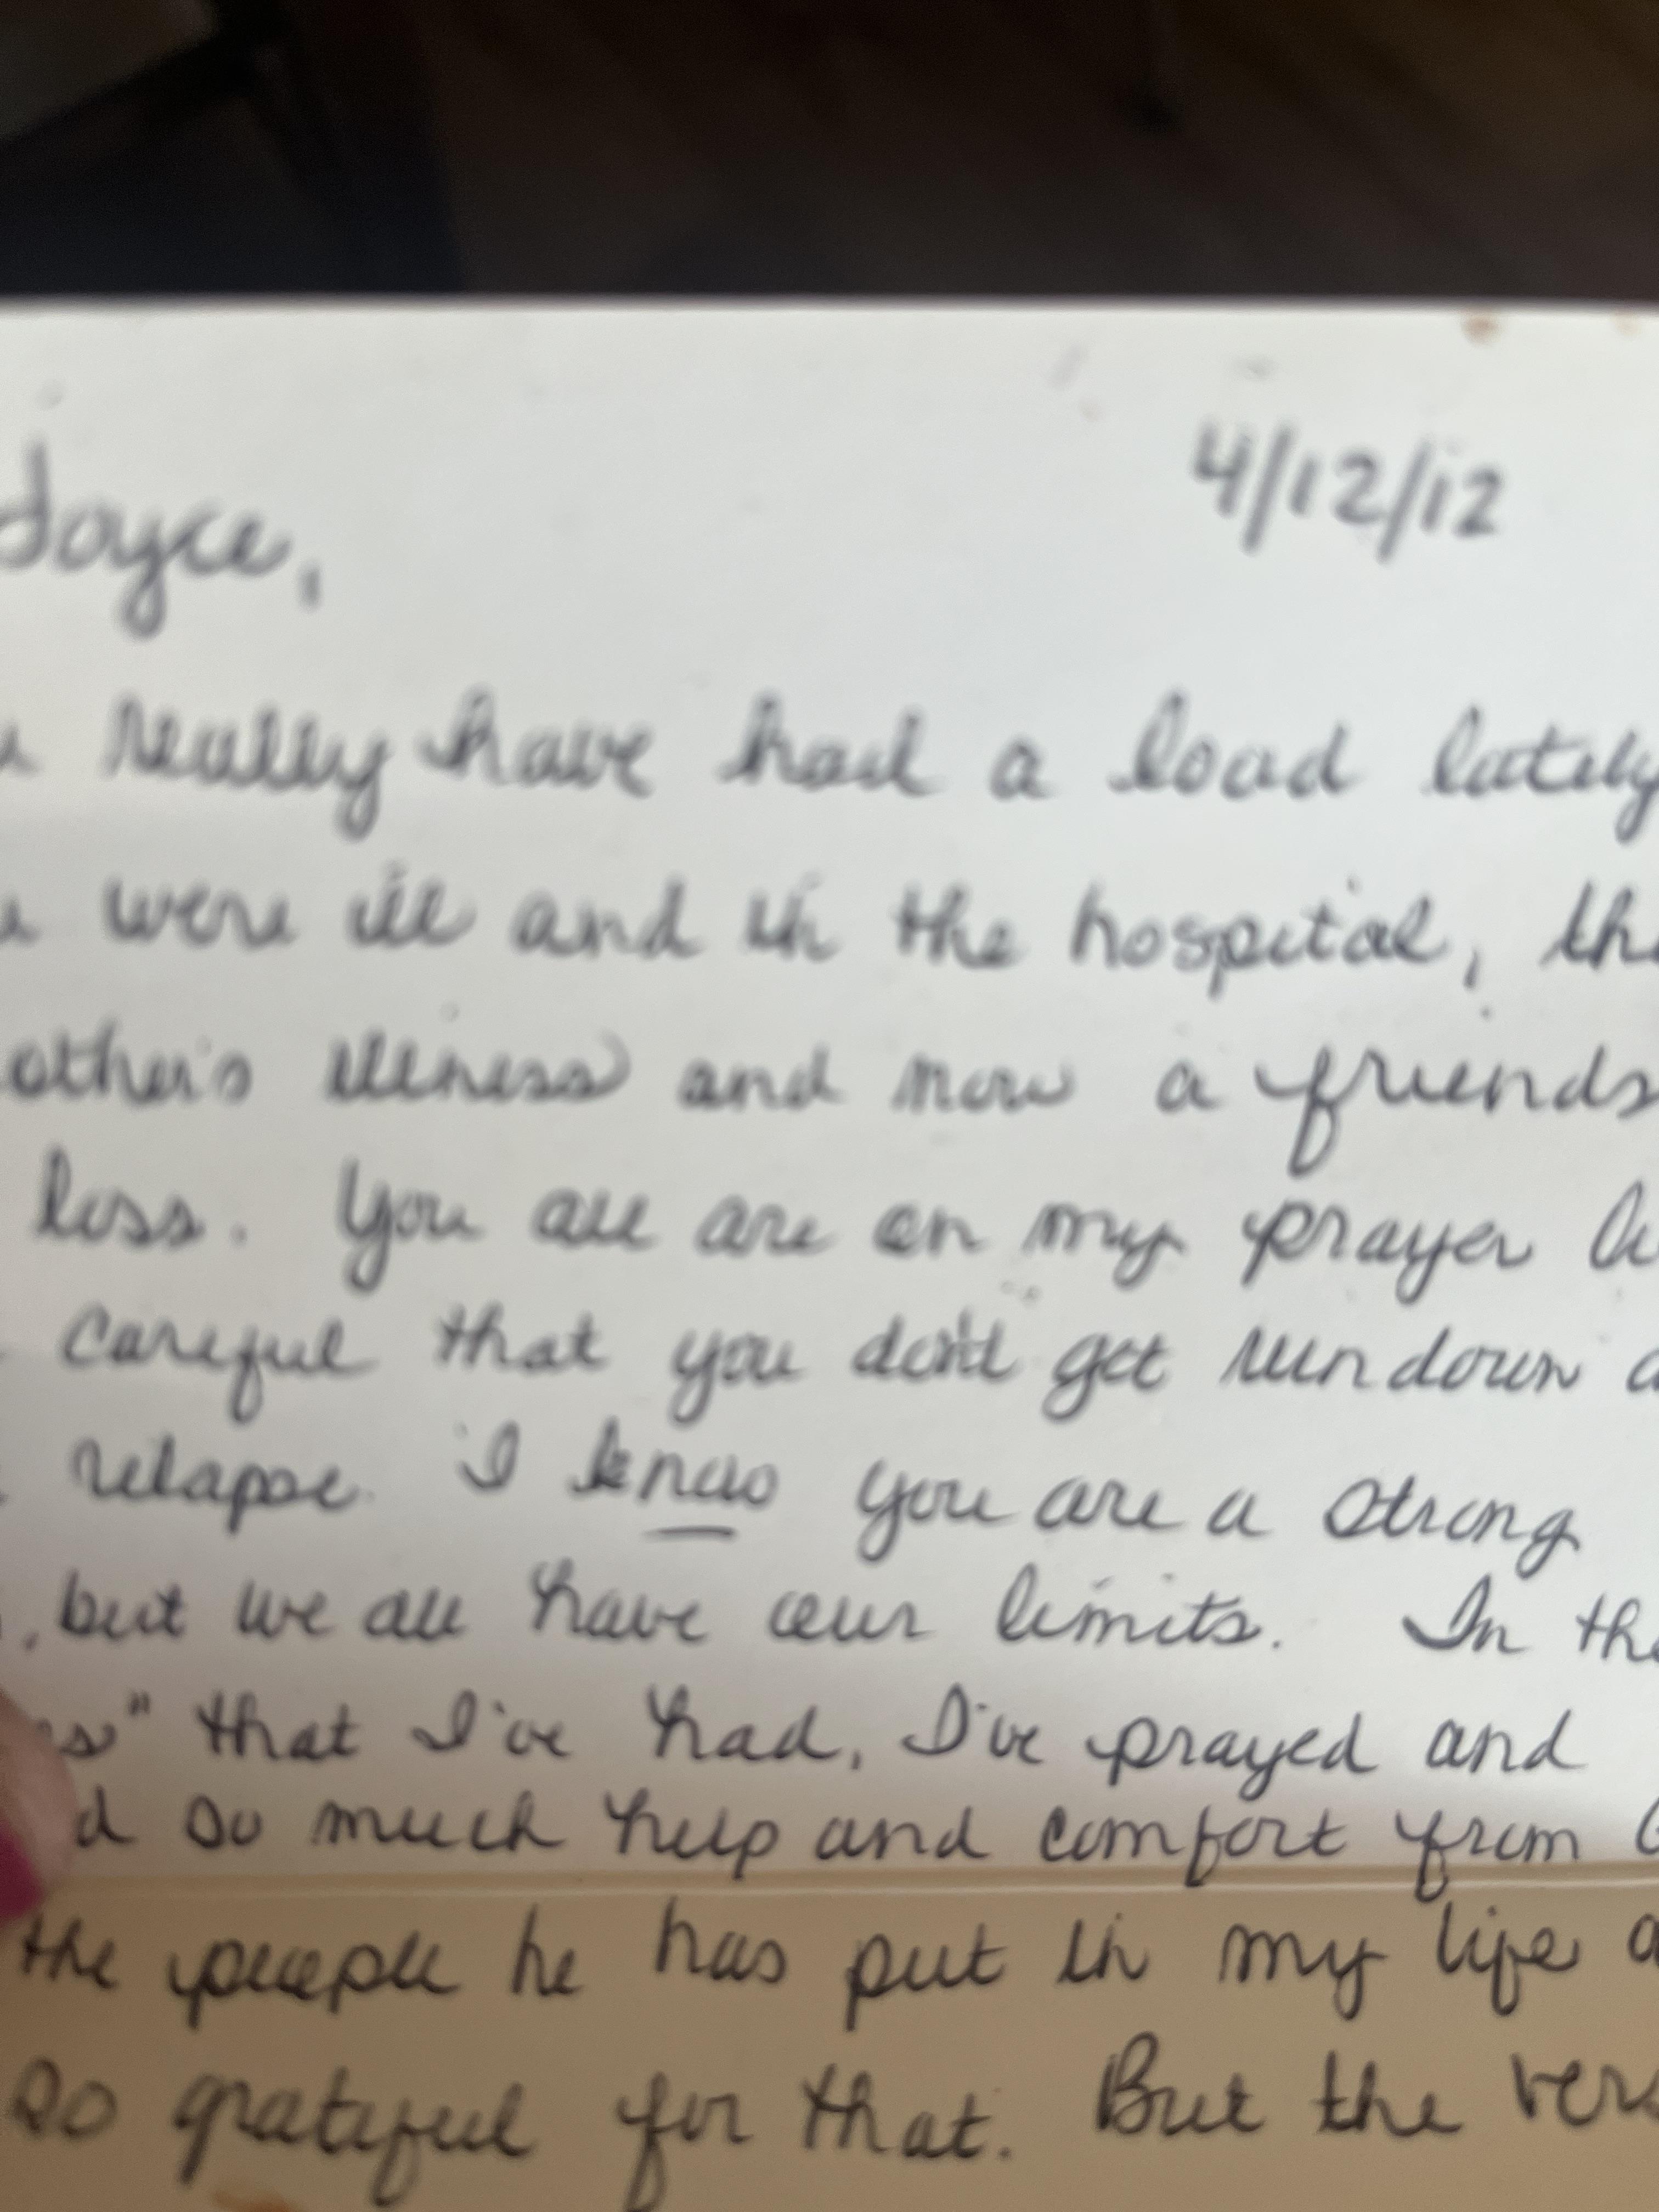 Joyce,
4/12/12
really have had a load lately
were ill and in the hospital, the
other's illness and now a friends
loss. You all are on my prayer li
careful that you don't get rundown a
relapse. I know you are a strong
, but we all have our limits. In the
es" that I've had, I've prayed and
d so much help and comfort from G
the people he has put in my life a
so grateful for that. But the vers